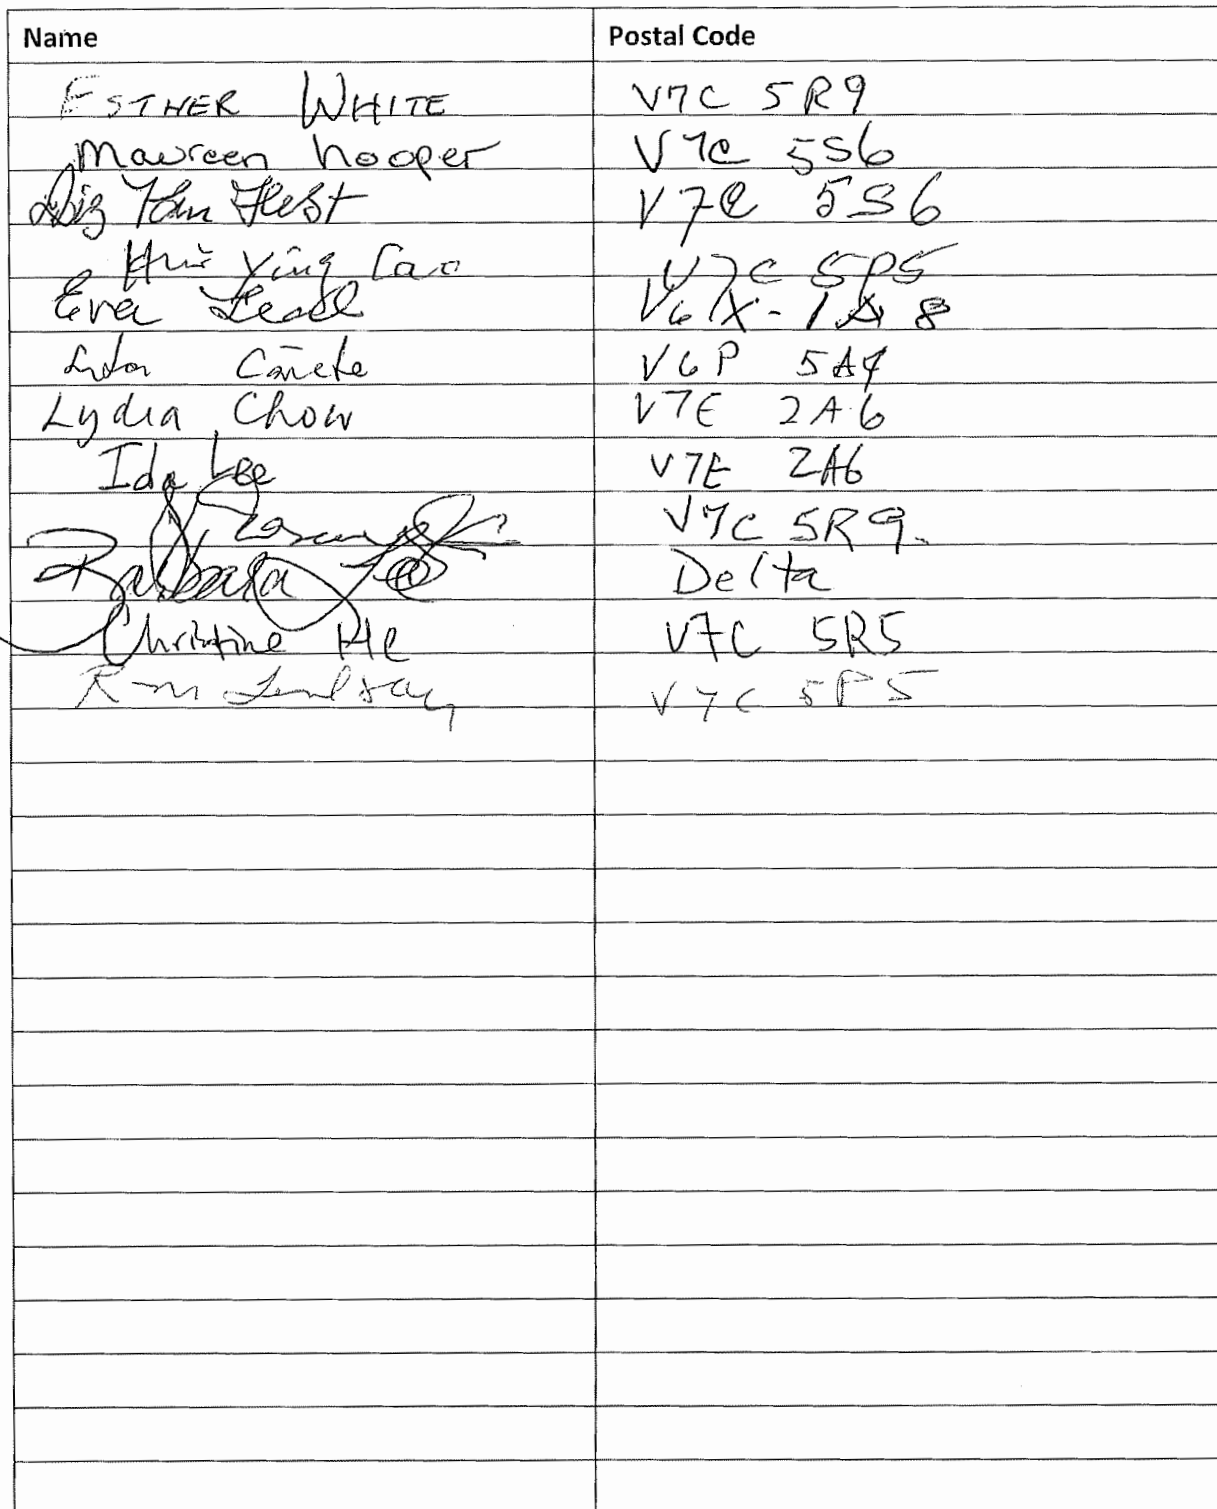 Name Postal Code
ESTHER WHITE V7C 5R9
Maureen hooper V7C 5S6
V7C 5S6
Hui Ying Cao V7C 5P5
Eva V6X-1A8
Cañete V6P 5A4
Lydia Chow V7E 2A6
Ida Lee V7E 2A6
V7C 5R9.
Barbara Lee Delta
Christine He V7C 5R5
Ron Lindsay V7C 5P5